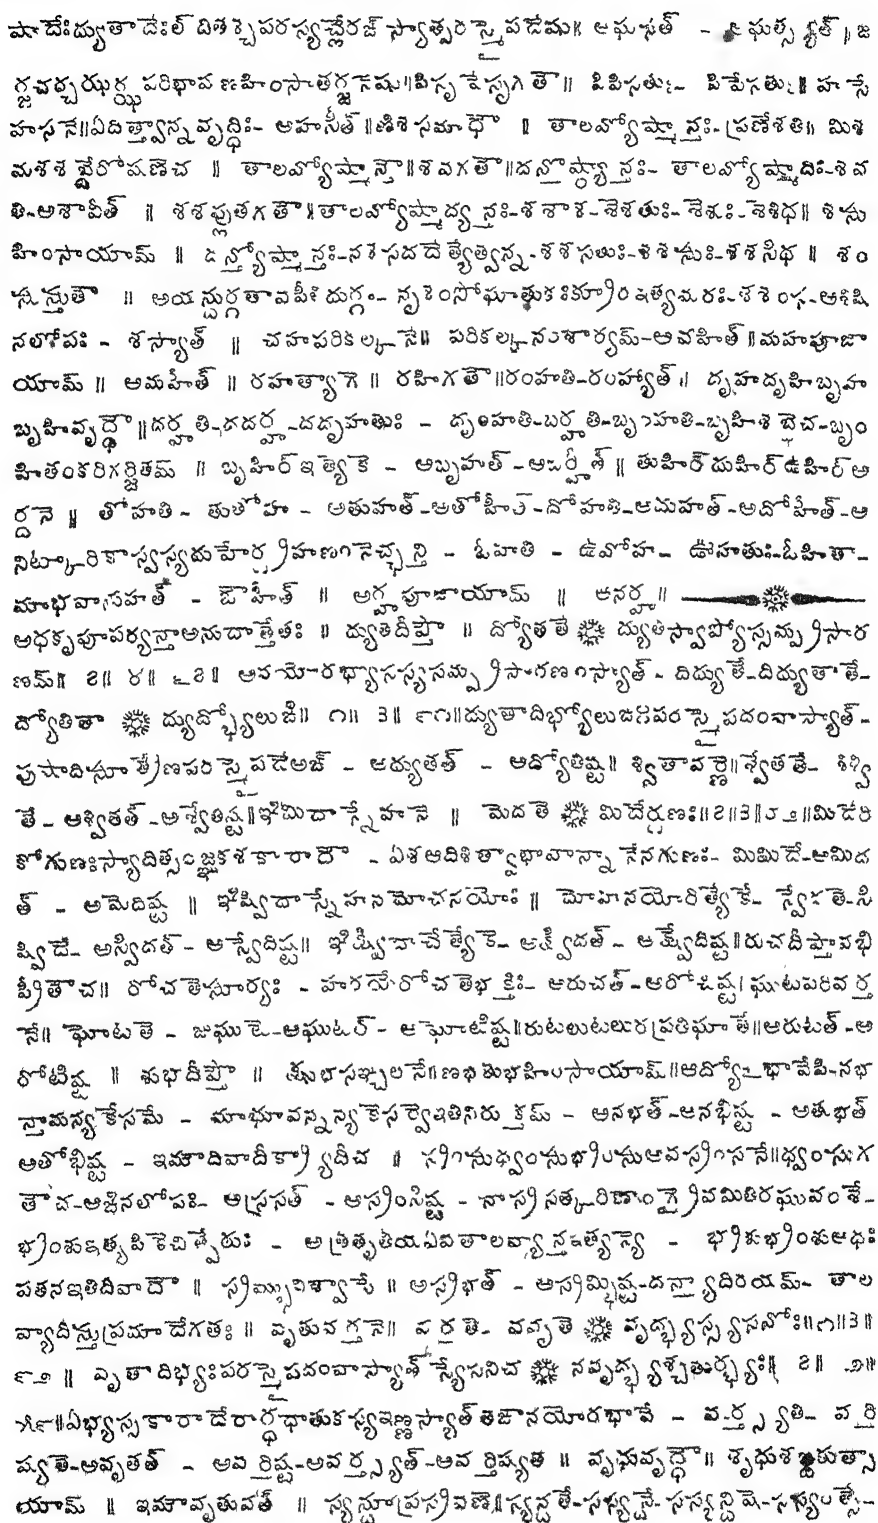 షాదేఃద్యుతాదేఃల్ దితశ్చపరస్యచ్లేరఙ్ స్యాత్పరస్మైపదేషు॥ అఘసత్ - అఘత్స్యత్॥ జ
ర్జచర్చఝర్ఝపరిభాషణహింసాతర్జనేషు॥పిసృపేసృగతౌ॥ పిపిసతుః- పిపేసతుః॥ హసే
హసనే॥ఏదిత్త్వాన్నవృద్ధిః- అహసీత్॥ణిశసమాధౌ ॥ తాలవ్యోష్మాన్తః- ప్రణేశతి॥ మిశ
మశశబ్దేరోషణేచ ॥ తాలవ్యోష్మాన్తౌ॥శవగతౌ॥దన్తోష్ఠ్యాన్తః- తాలవ్యోష్మాదిః-శవ
తి-అశావీత్ ॥ శశప్లుతగతౌ॥తాలవ్యోష్మాద్యన్తః-శశాశ-శేశతుః-శేశుః-శేశిథ॥ శసు
హింసాయామ్ ॥ దన్త్యోష్మాన్తః-నశసదదేత్యేత్వన్న-శశసతుః-శశసుః-శశసిథ ॥ శం
సుస్తుతౌ ॥ అయన్దుర్గతావపీతిదుర్గః- నృశంసోఘాతుకఃక్రూరఇత్యమరః-శశంస-ఆశిషి
నలోపః - శస్యాత్ ॥ చహపరికల్కనే॥ పరికల్కనంశాఠ్యమ్-అచహీత్॥మహపూజా
యామ్॥ అమహీత్ ॥ రహత్యాగే॥ రహిగతౌ॥రంహతి-రంహ్యాత్॥ దృహదృహిబృహ
బృహివృద్ధౌ॥దర్హతి-దదర్హ-దదృహతుః - దృంహతి-బర్హతి-బృంహతి-బృహిశబ్దేచ-బృం
హితంకరిగర్జితమ్ ॥ బృహిర్ఇత్యేకే - అబృహత్-అబర్హీత్॥ తుహిర్దుహిర్ఉహిర్అ
ర్దనే॥ తోహతి- తుతోహ - అతుహత్-అతోహీత్-దోహతి-అదుహత్-అదోహీత్-అ
నిట్కారికాస్వస్యదుహేర్గ్రహణంనేచ్ఛన్తి - ఓహతి - ఉవోహ- ఊహతుః-ఓహితా-
మాభవానుహత్ - ఔహీత్ ॥ అర్హపూజాయామ్ ॥ ఆనర్హ॥
అథకృపూపర్యన్తాఅనుదాత్తేతః ॥ ద్యుతదీప్తౌ ॥ ద్యోతతే ద్యుతిస్వాప్యోస్సమ్ప్రసార
ణమ్॥ ౭॥ ౪॥ ౬౭॥ అనయోరభ్యాసస్యసమ్ప్రసారణంస్యాత్- దిద్యుతే-దిద్యుతాతే-
ద్యోతితా ద్యుద్భ్యోలుఙి॥ ౧॥ ౩॥ ౯౧॥ద్యుతాదిభ్యోలుఙఃపరస్మైపదంవాస్యాత్-
పుషాదిసూత్రేణపరస్మైపదేఅఙ్ - అద్యుతత్ - అద్యోతిష్ట॥ శ్వితావర్ణే॥శ్వేతతే- శిశ్వి
తే- అశ్వితత్-అశ్వేతిష్ట॥ఞిమిదాస్నేహనే ॥ మేదతే మిదేర్గుణః॥౭॥౩॥౮౨॥మిదేరి
కోగుణఃస్యాదిత్సంజ్ఞకశకారాదౌ - ఏశఆదిశిత్త్వాభావాన్నానేనగుణః- మిమిదే-అమిద
త్ - అమేదిష్ట ॥ ఞిష్విదాస్నేహనమోచనయోః॥ మోహనయోరిత్యేకే- స్వేదతే-సి
ష్విదే- అస్విదత్- అస్వేదిష్ట॥ ఞిక్ష్విదాచేత్యేకే- అక్ష్విదత్- అక్ష్వేదిష్ట॥రుచదీప్తావభి
ప్రీతౌచ॥ రోచతేసూర్యః - హరయేరోచతేభక్తిః- అరుచత్-అరోచిష్ట॥ఘుటపరివర్త
నే॥ ఘోటతే - జుఘుటే-అఘుటత్- అఘోటిష్ట॥రుటలుటలుఠప్రతిఘాతే॥అరుటత్-అ
రోటిష్ట ॥ శుభదీప్తౌ ॥ క్షుభసఞ్చలనే॥ణభతుభహింసాయామ్॥ఆద్యోఽభావేపి-నభ
న్తామన్యకేసమే - మాభూవన్నన్యకేసర్వేఇతినిరుక్తమ్ - అనభత్-అనభిష్ట - అతుభత్
అతోభిష్ట - ఇమౌదివాదీక్ర్యాదీచ ॥ స్రంసుధ్వంసుభ్రంసుఅవస్రంసనే॥ధ్వంసుగ
తౌచ-అఙినలోపః- అస్రసత్ - అస్రంసిష్ట - నాస్రసత్కరిణాంగ్రైవమితిరఘువంశే-
భ్రంశుఇత్యపికేచిత్పేఠుః - అత్రతృతీయఏవతాలవ్యాన్తఇత్యన్యే - భ్రశుభ్రంశుఅధః
పతనఇతిదివాదౌ ॥ స్రమ్భువిశ్వాసే ॥ అస్రభత్ - అస్రమ్భిష్ట-దన్త్యాదిరయమ్- తాల
వ్యాదిస్తుప్రమాదేగతః॥ వృతువర్తనే॥ వర్తతే- వవృతే వృద్భ్యస్స్యసనోః॥౧॥౩॥
౯౨॥ వృతాదిభ్యఃపరస్మైపదంవాస్యాత్స్యేసనిచ నవృద్భ్యశ్చతుర్భ్యః॥ ౭॥ ౨॥
౫౯॥ఏభ్యస్సకారాదేరార్ధధాతుకస్యఇణ్ణస్యాత్తఙానయోరభావే - వర్త్స్యతి- వర్తి
ష్యతే-అవృతత్ - అవర్తిష్ట-అవర్త్స్యత్-అవర్తిష్యత ॥ వృధువృద్ధౌ॥ శృధుశబ్దకుత్సా
యామ్ ॥ ఇమౌవృతువత్ ॥ స్యన్దూప్రస్రవణే॥స్యన్దతే-సస్యన్దే-సస్యన్దిషే-సస్యంత్సే-